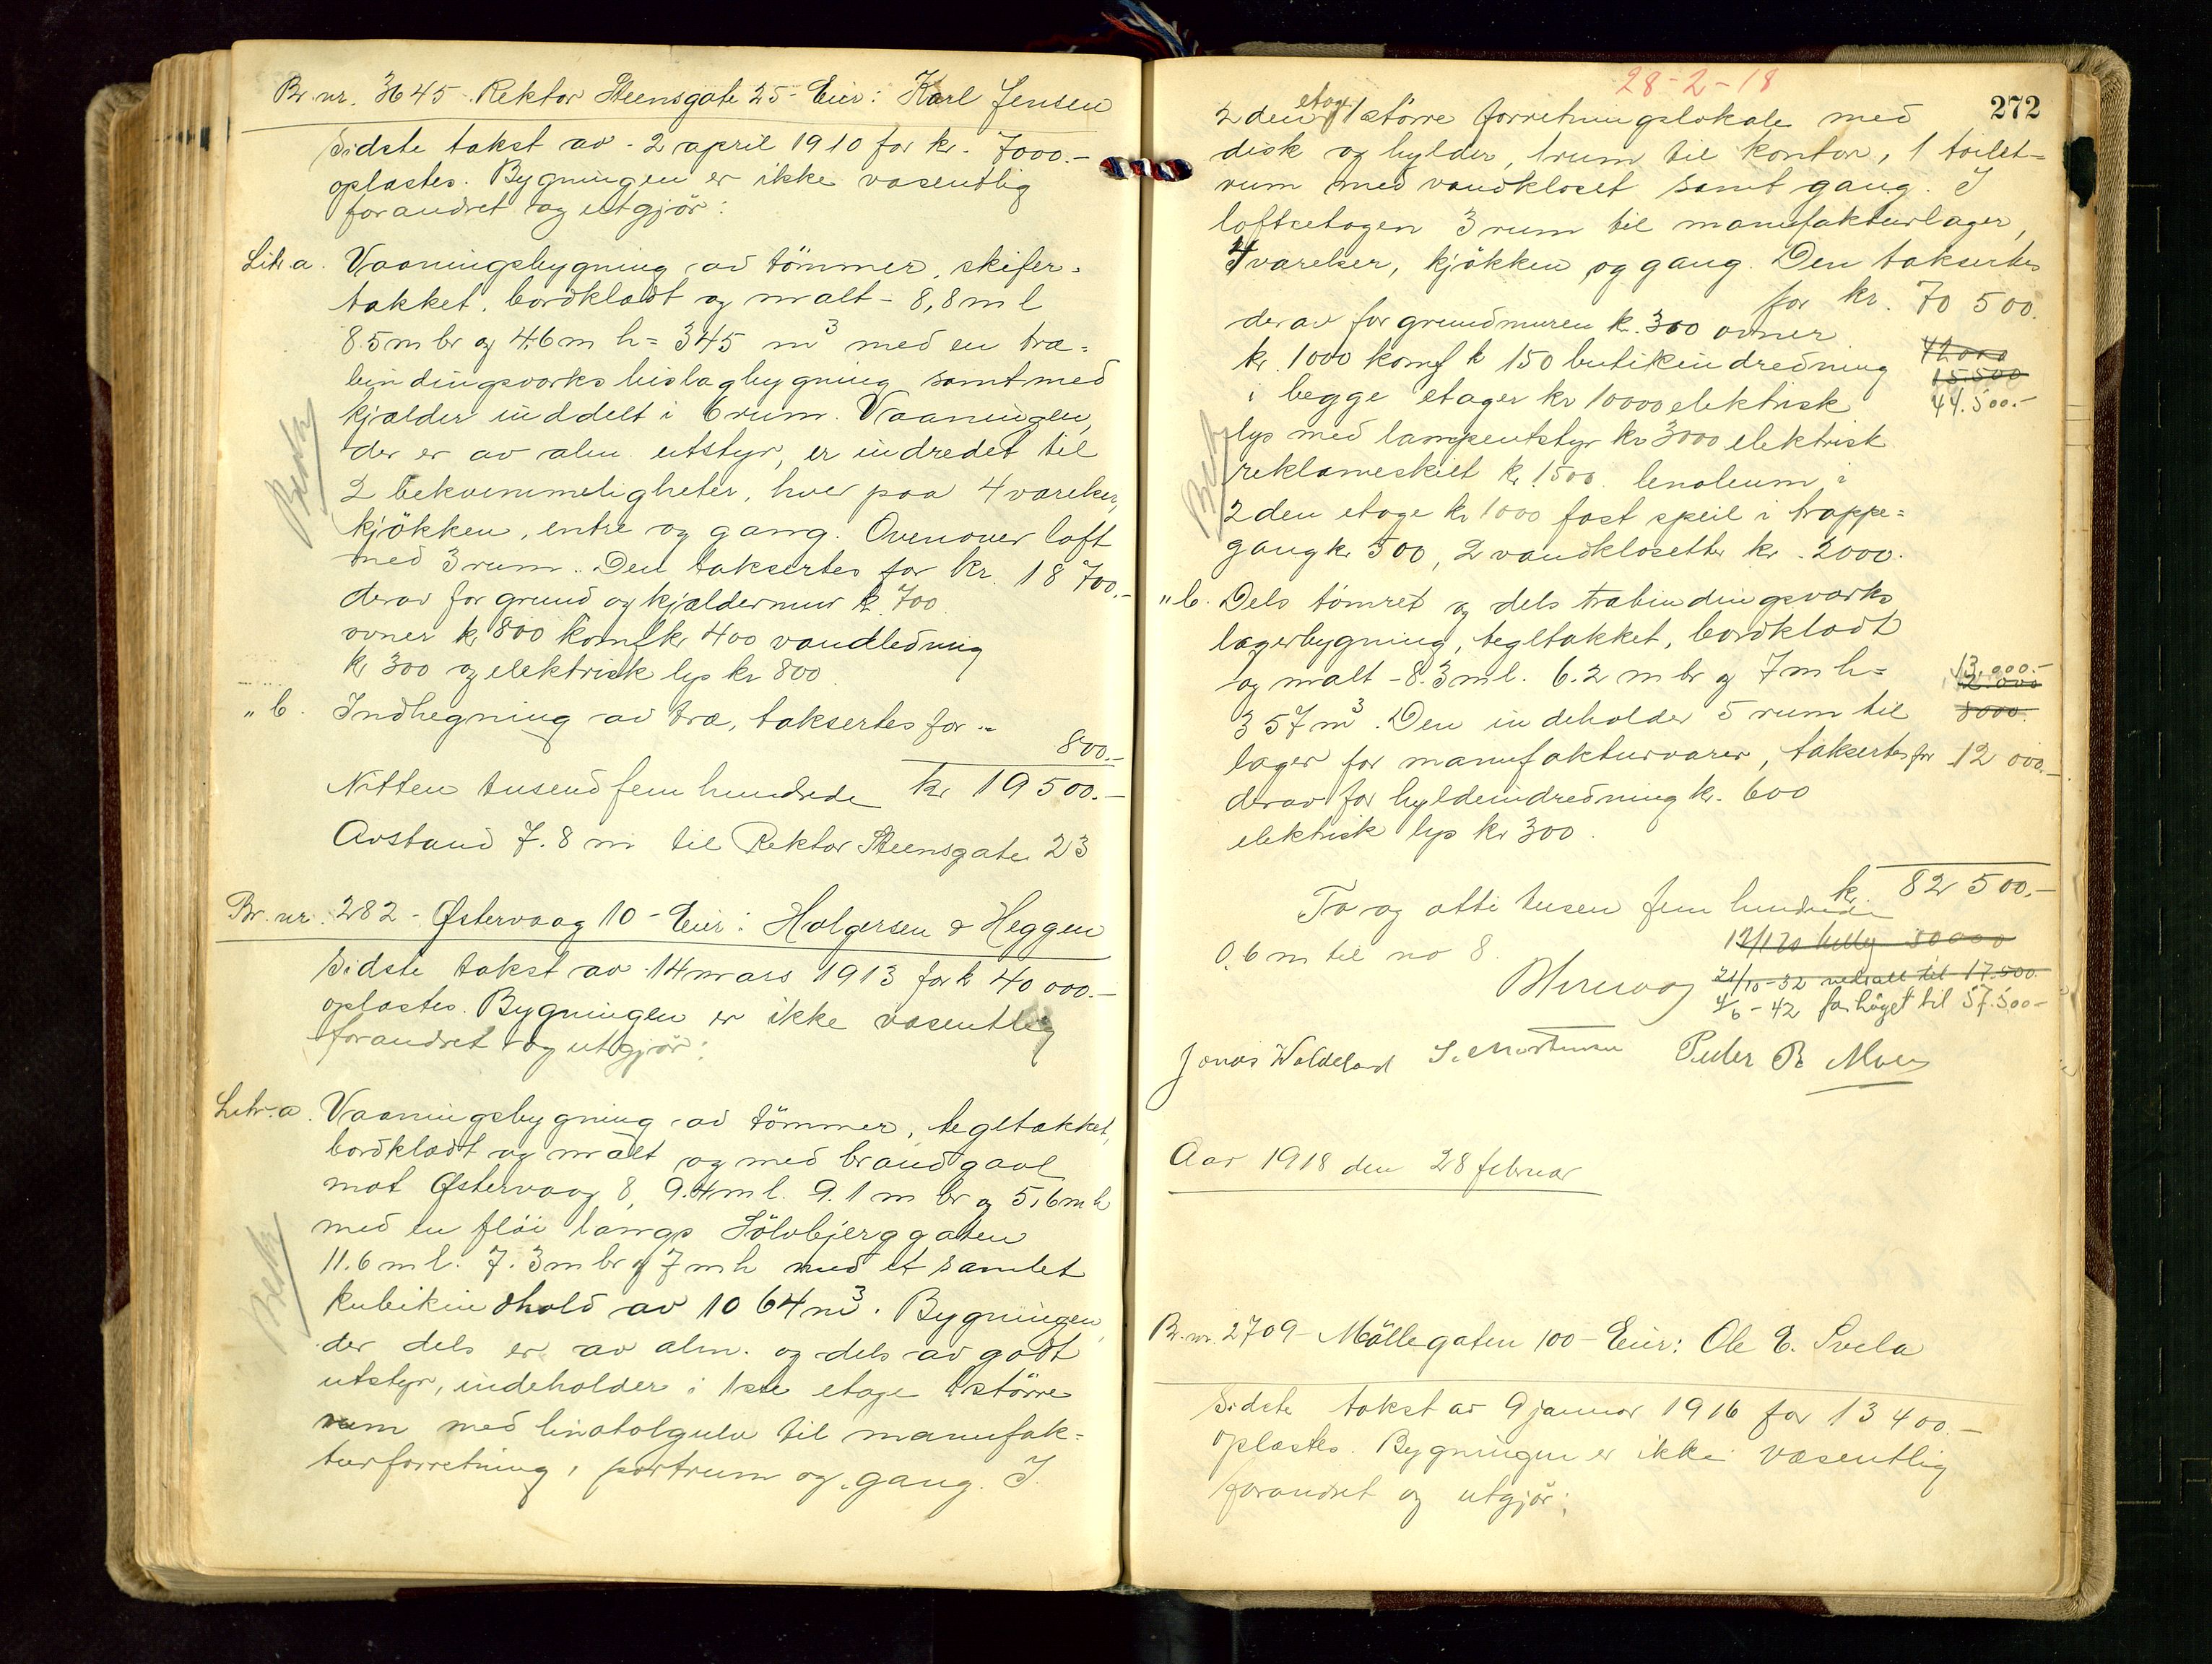 Br. nr. 3645 - Rektor Steensgate 25 - Eier: Karl Jensen
Sidste takst av - 2 april 1910 for kr. 7000.-
oplæstes. Bygningen er ikke væsentlig
forandret og utgjør:
Litr. a. Vaaningsbygning av tömmer, skifer-
takket, bordklædt og malt - 8,8 m l
8.5 m br og 4.6 m h = 345 m³ med en træ-
bindingsverks bislagbygning samt med
kjælder inddelt i 6 rum. Vaaningen,
der er av alm. utstyr, er indredet til
2 bekvemmeligheter, hver paa 4 værelser,
kjökken, entre og gang. Ovenover loft
med 3 rum. Den taksertes for kr. 18 700.-
derav for grund og kjældermur kr. 700
ovner kr 800 komf kr. 400 vandledning
kr 300 og elektrisk lys kr 800
" b. Indhegning av træ, taksertes for "
800.-
Nitten tusend fem hundrede kr 19 500.-
Avstand 7.8 m til Rektor Steensgate 23
Br. nr. 282 - Østervaag 10 - Eier: Holgersen & Heggen
Sidste takst av 14 mars 1913 for kr 40 000.-
oplæstes. Bygningen er ikke væsentlig
forandret og utgjør:
Litr. a. Vaaningsbygning av tömmer, tegltakket,
bordklædt og malt og med brandgavl
mot Østervaag 8, 9.4 m l. 9.1 m br og 5,6 m h
med en flöi langs Sölvbjerggaten
11.6 m l. 7.3 m br og 7 m h med et samlet
kubikindhold av 1064 m³. Bygningen,
der dels er av alm. og dels av godt
utstyr, indeholder i 1ste etage 1 större
rum med linotolgulv til manufak-
turforretning, portrum og gang. I
28-2-18
272
2 den etage 1 större forretningslokale med
disk og hylder, 1 rum til kontor, 1 toilet-
rum med vandkloset samt gang. I
loftsetagen 3 rum til manufakturlager,
4 værelser, kjökken og gang. Den taksertes
for kr. 70 500.
derav for grundmuren kr. 300 ovner
kr. 1000 komf kr 150 butikindredning
15.500
i begge etager kr 10000 elektrisk
44.500.-
lys med lampeutstyr kr 3000 elektrisk
reklameskilt kr. 1500. lenoleum i
2 den etage kr 1000 fast speil i trappe-
gang kr 500, 2 vandklosetter kr. 2000.
" b. Dels tömret og dels træbindingsverks
lagerbygning, tegltakket, bordklædt
og malt - 8.3 m l. 6.2 m br og 7 m h =
13.000.-
357 m³. Den indeholder 5 rum til
8000
lager for manufakturvarer, taksertes for 12 000.-
derav for hyldeindredning kr. 600
elektrisk lys kr 300.
kr. 82 500.-
To og otti tusen fem hundrede
0.6 m til no 8.
21/10-32 nedsatt til 17.500.
4/6-42 forhöget til 57.500-
Jonas Waldeland S. Mortensen Peder R Moen
Aar 1918 den 28 februar
Br. nr. 2709 - Möllegaten 100 - Eier: Ole E. Svela
Sidste takst av 9 januar 1916 for 13 400.-
oplæstes. Bygningen er ikke væsentlig
forandret og utgjør: